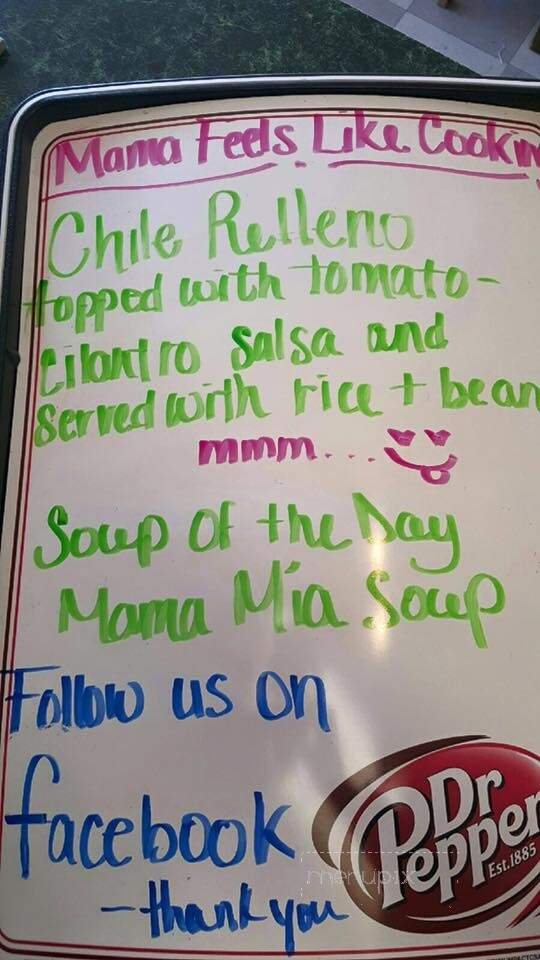 Mama Feels Like Cookin
Chile Relleno
topped with tomato-
cilantro salsa and
served with rice + bean
mmm....
Soup Of the Day
Mama Mia Soup
Follow us on
facebook
-thank you
Dr
Pepper
Est.1885
menupix